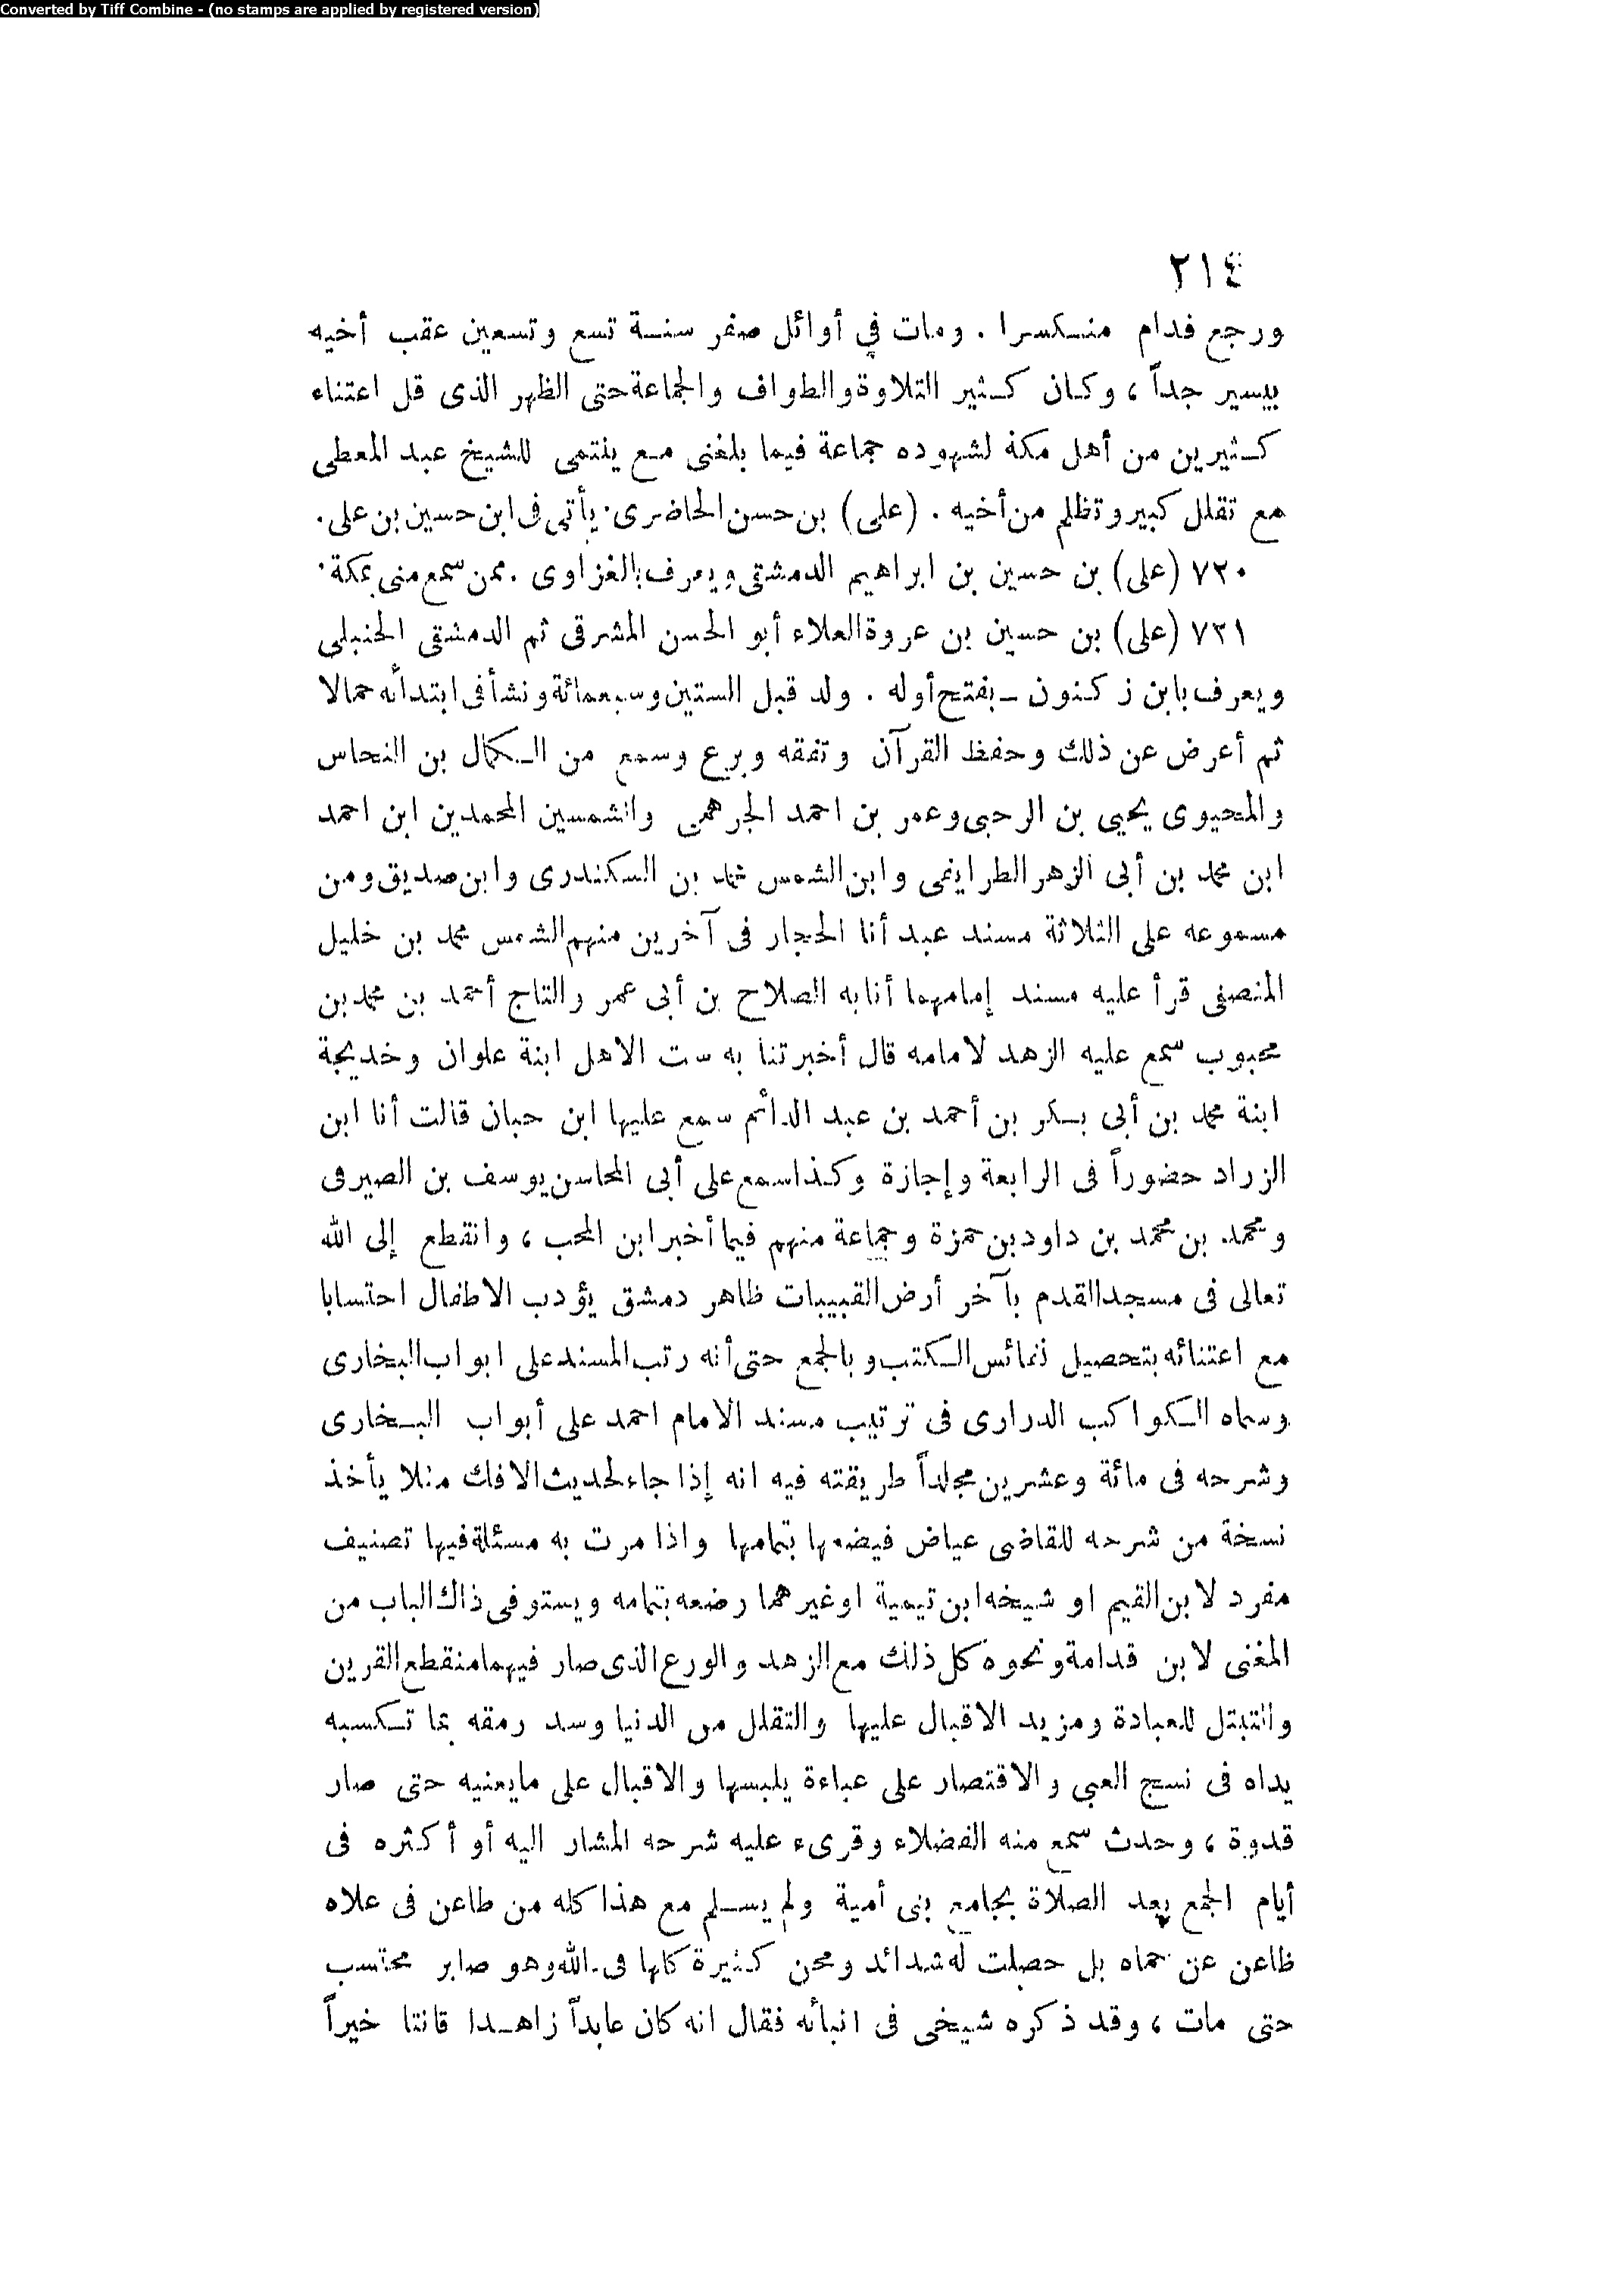 Converted by Tiff Combine - (no stamps are applied by registered version)
٢١٤
ورجع فدام منكسرا . ومات في أوائل صفر سنة تسع وتسعين عقب أخيه
بيسير جداً ، وكان كثير التلاوة والطواف والجماعة حتى الظهر الذى قل اعتناء
كثيرين من أهل مكة لشهوده جماعة فيما بلغنى مع ينتمى للشيخ عبد المعطى
مع تقلل كبير وتظلم من أخيه . (على) بن حسن الحاضرى. يأتى فى ابن حسين بن على.
٧٢٠ (على) بن حسين بن ابراهيم الدمشقى ويعرف بالغزاوى . ممن سمع منى بمكة.
٧٢١ (على) بن حسين بن عروة العلاء أبو الحسن المشرقى ثم الدمشقى الحنبلى
ويعرف بابن زكنون ـ بفتح أوله . ولد قبل الستين وسبعمائة ونشأ فى ابتدائه جمالا
ثم أعرض عن ذلك وحفظ القرآن وتفقه وبرع وسمع من الكمال بن النحاس
والمحيوى يحيى بن الرحبى وعمر بن احمد الجرهمى والشمسين المحمدين ابن احمد
ابن محمد بن أبى الزهر الطرايفى وابن الشمس محمد بن السكندرى وابن صديق ومن
مسموعه على الثلاثة مسند عبد أنا الحجار فى آخرين منهم الشمس محمد بن خليل
المنصفى قرأ عليه مسند إمامهما أنا به الصلاح بن أبى عمر والتاج أحمد بن محمد بن
محبوب سمع عليه الزهد لامامه قال أخبرتنا به ست الاهل ابنة علوان وخديجة
ابنة محمد بن أبى بكر بن أحمد بن عبد الدائم سمع عليها ابن حبان قالت أنا ابن
الزراد حضوراً فى الرابعة وإجازة وكذا سمع على أبى المحاسن يوسف بن الصيرفى
ومحمد بن محمد بن داود بن حمزة وجماعة منهم فيما أخبر ابن المحب ، وانقطع إلى الله
تعالى فى مسجد القدم بآخر أرض القبيبات ظاهر دمشق يؤدب الاطفال احتسابا
مع اعتنائه بتحصيل نفائس الكتب وبالجمع حتى أنه رتب المسند على ابواب البخارى
وسماه الكواكب الدرارى فى ترتيب مسند الامام احمد على أبواب البخارى
وشرحه فى مائة وعشرين مجلداً طريقته فيه انه إذا جاء لحديث الافك مثلا يأخذ
نسخة من شرحه للقاضى عياض فيضمها بتمامها واذا مرت به مسئلة فيها تصنيف
مفرد لابن القيم او شيخه ابن تيمية او غيرهما وضعه بتمامه ويستوفى ذاك الباب من
المغنى لابن قدامة ونحوه كل ذلك مع الزهد والورع الذى صار فيهما منقطع القرين
والتبتل للعبادة ومزيد الاقبال عليها والتقلل من الدنيا وسد رمقه بما تكسبه
يداه فى نسج العبى والاقتصار على عباءة يلبسها والاقبال على مايعنيه حتى صار
قدوة ، وحدث سمع منه الفضلاء وقرىء عليه شرحه المشار اليه أو أكثره فى
أيام الجمع بعد الصلاة بجامع بنى أمية ولم يسلم مع هذا كله من طاعن فى علاه
ظاعن عن حماه بل حصلت له شدائد ومحن كثيرة كلها فى الله وهو صابر محتسب
حتى مات ، وقد ذكره شيخى فى انبائه فقال انه كان عابداً زاهدا قانتا خيراً